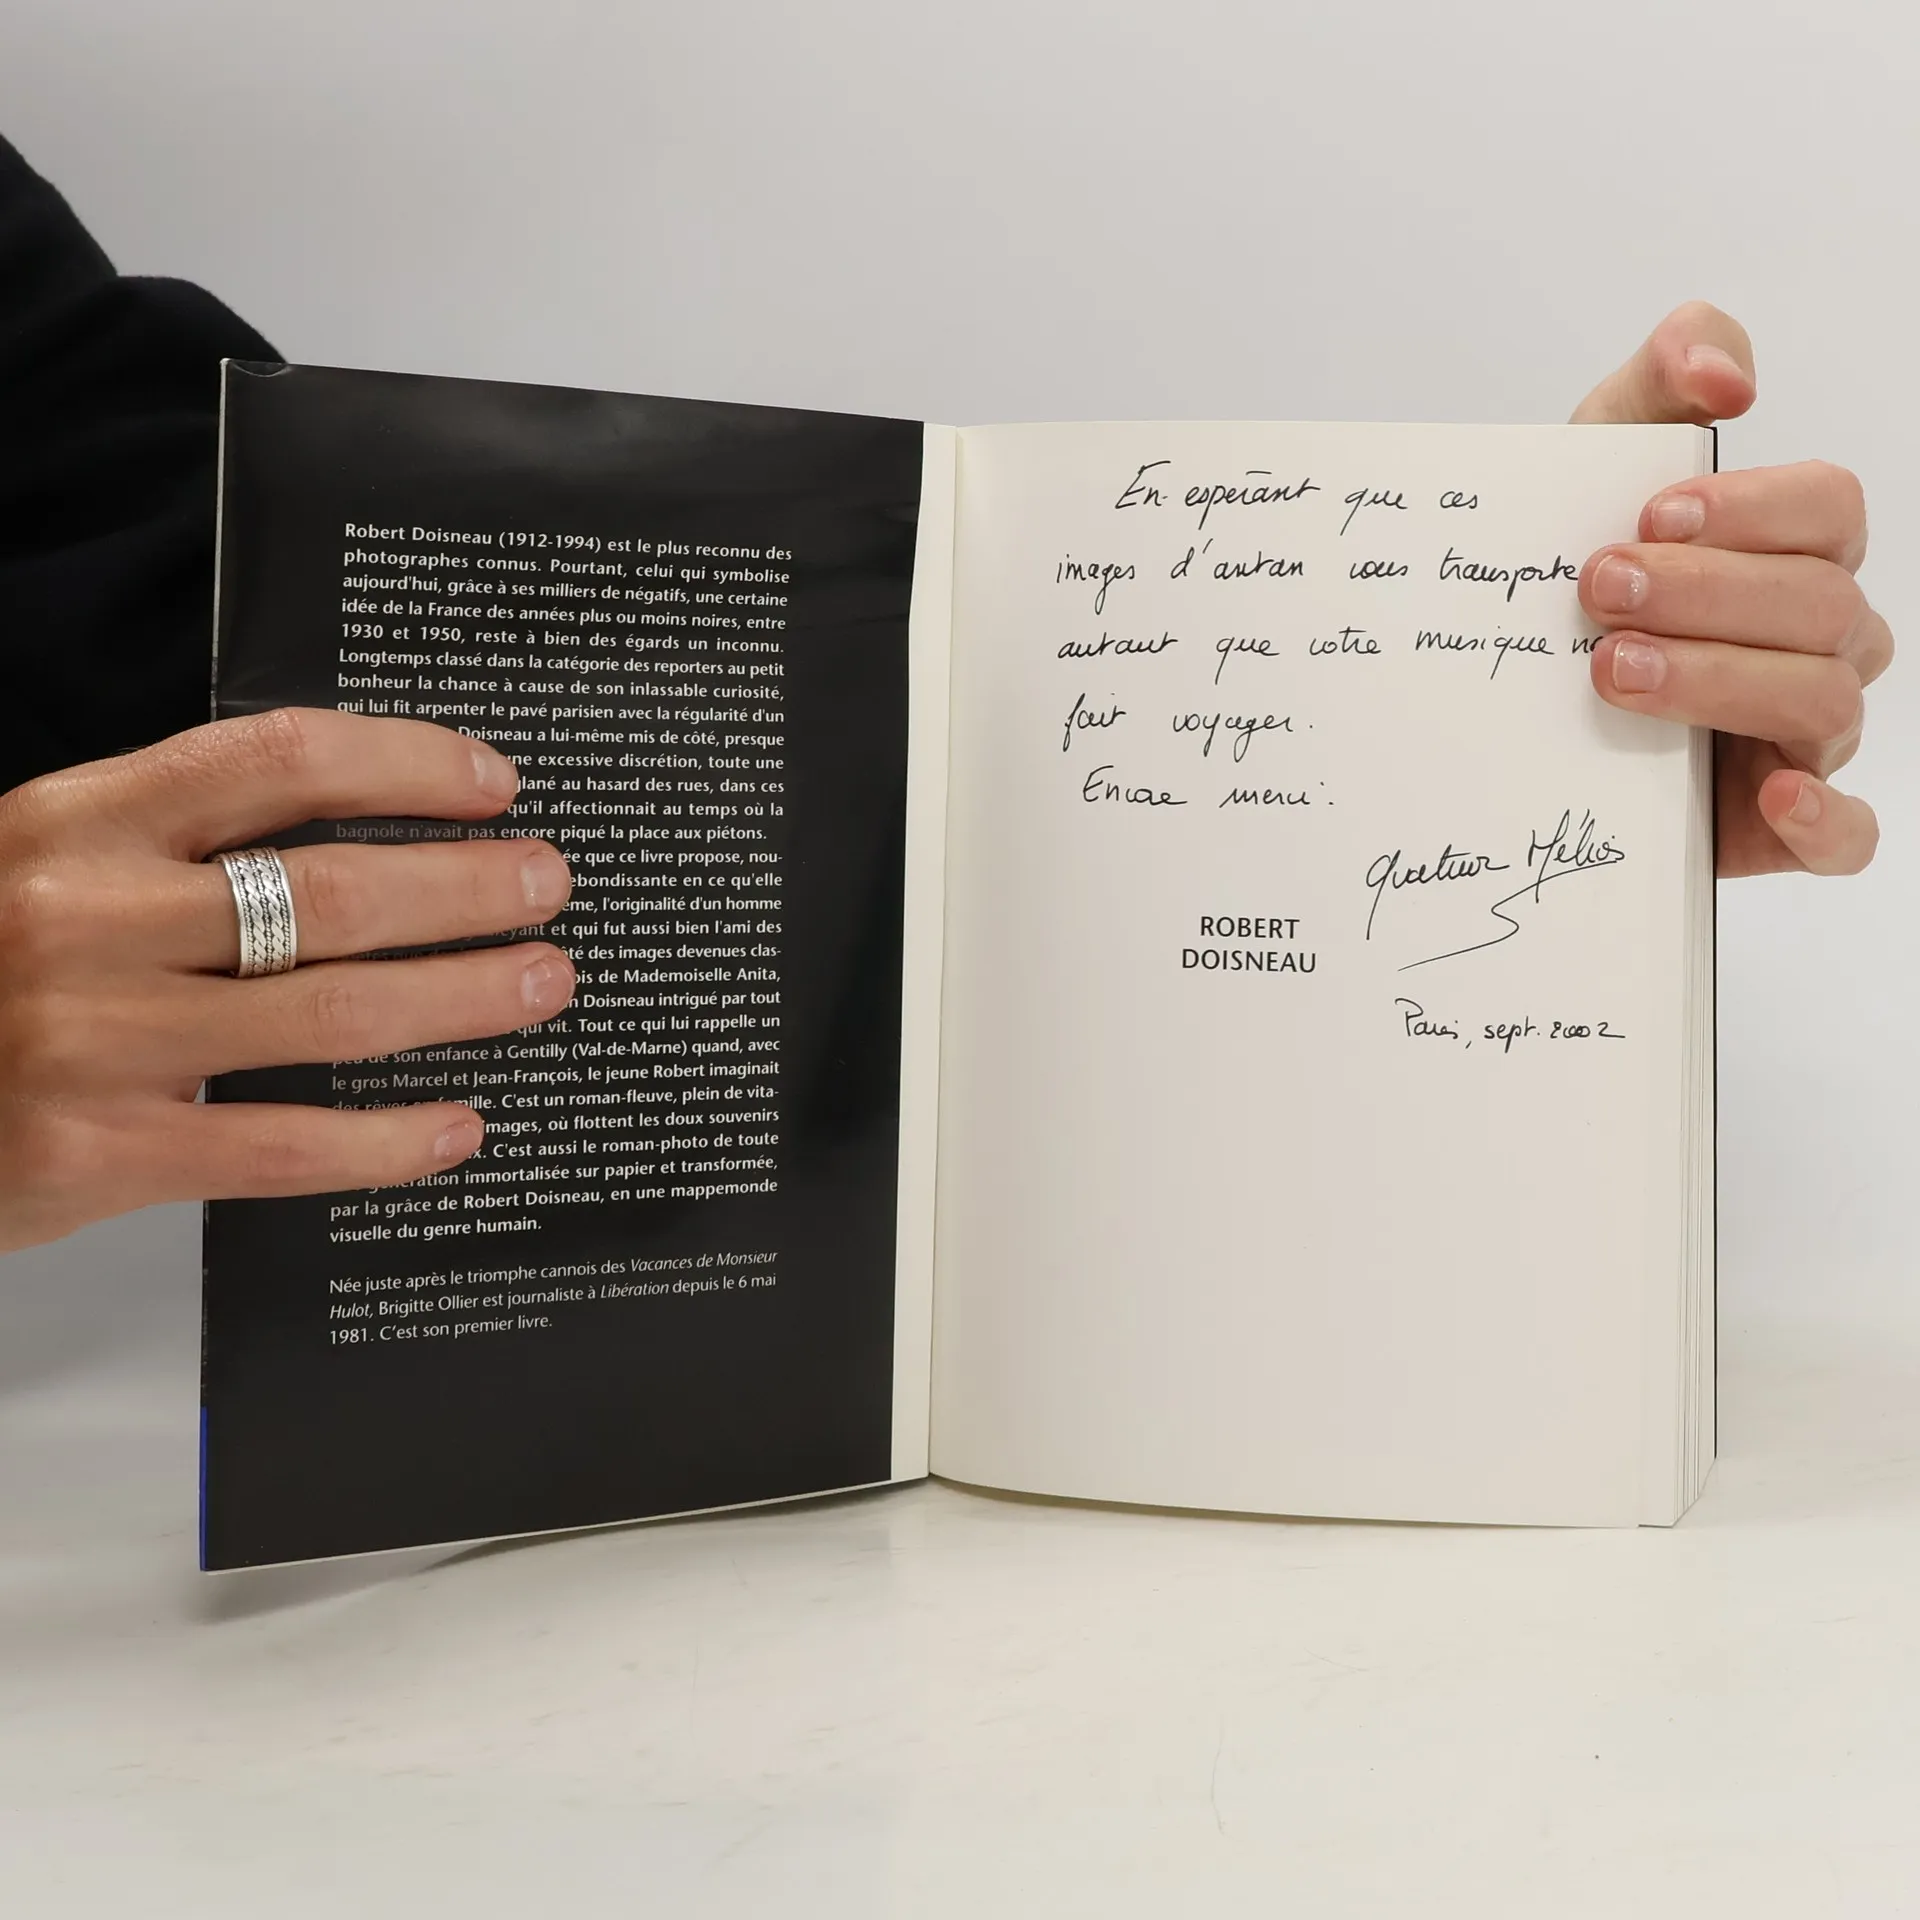 Robert Doisneau (1912-1994) est le plus reconnu des
photographes connus. Pourtant, celui qui symbolise
aujourd'hui, grâce à ses milliers de négatifs, une certaine
idée de la France des années plus ou moins noires, entre
1930 et 1950, reste à bien des égards un inconnu.
Longtemps classé dans la catégorie des reporters au petit
bonheur la chance à cause de son inlassable curiosité,
qui lui fit arpenter le pavé parisien avec la régularité d'un
Doisneau a lui-même mis de côté, presque
une excessive discrétion, toute une
glané au hasard des rues, dans ces
qu'il affectionnait au temps où la
bagnole n'avait pas encore piqué la place aux piétons.
que ce livre propose, nou-
ebondissante en ce qu'elle
l'originalité d'un homme
et qui fut aussi bien l'ami des
des images devenues clas-
de Mademoiselle Anita,
Doisneau intrigué par tout
qui vit. Tout ce qui lui rappelle un
peu de son enfance à Gentilly (Val-de-Marne) quand, avec
le gros Marcel et Jean-François, le jeune Robert imaginait
des rêves en famille. C'est un roman-fleuve, plein de vita-
images, où flottent les doux souvenirs
C'est aussi le roman-photo de toute
génération immortalisée sur papier et transformée,
par la grâce de Robert Doisneau, en une mappemonde
visuelle du genre humain.
Née juste après le triomphe cannois des Vacances de Monsieur
Hulot, Brigitte Ollier est journaliste à Libération depuis le 6 mai
1981. C'est son premier livre.
En espérant que ces
images d'antan vous transporte
autant que votre musique
fait voyager.
Encore merci.
Quatuor Hélios
ROBERT
DOISNEAU
Paris, sept. 2002